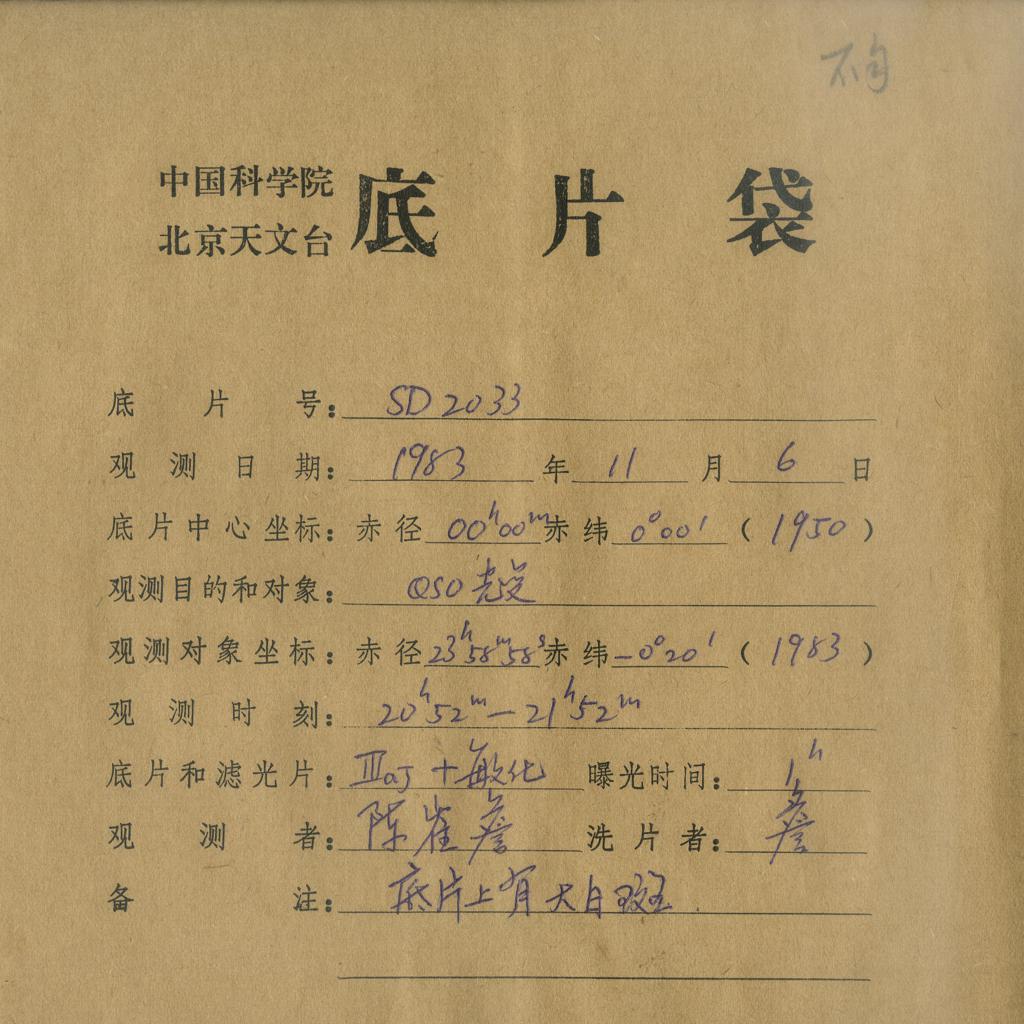 中国科学院
北京天文台
底片袋
底片号：SD 2033
观测日期：1983年11月6日
底片中心坐标：赤径00ʰ00ᵐ赤纬0°00′（1950）
观测目的和对象：QSO
观测对象坐标：赤径23ʰ58ᵐ58ˢ赤纬-0°20′（1983）
观测时刻：20ʰ52ᵐ—21ʰ52ᵐ
底片和滤光片：ⅢaJ+敏化 曝光时间：1ʰ
观测者：陈崔詹 洗片者：詹
备注：底片上有大白斑.